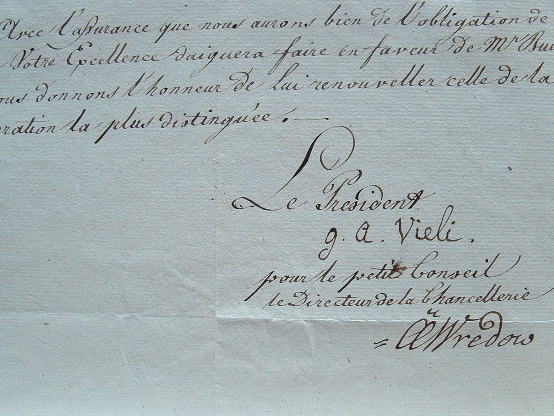 Avec l'assurance que nous aurons bien de l'obligation de
Votre Excellence daiguera faire en faveur de Mr
ous donnons l'honneur de Lui renouveller celle de la
ration la plus distinguée.
Le President
g. a. Vieli.
pour le petit Conseil
le Directeur de la Chancellerie
Wredow